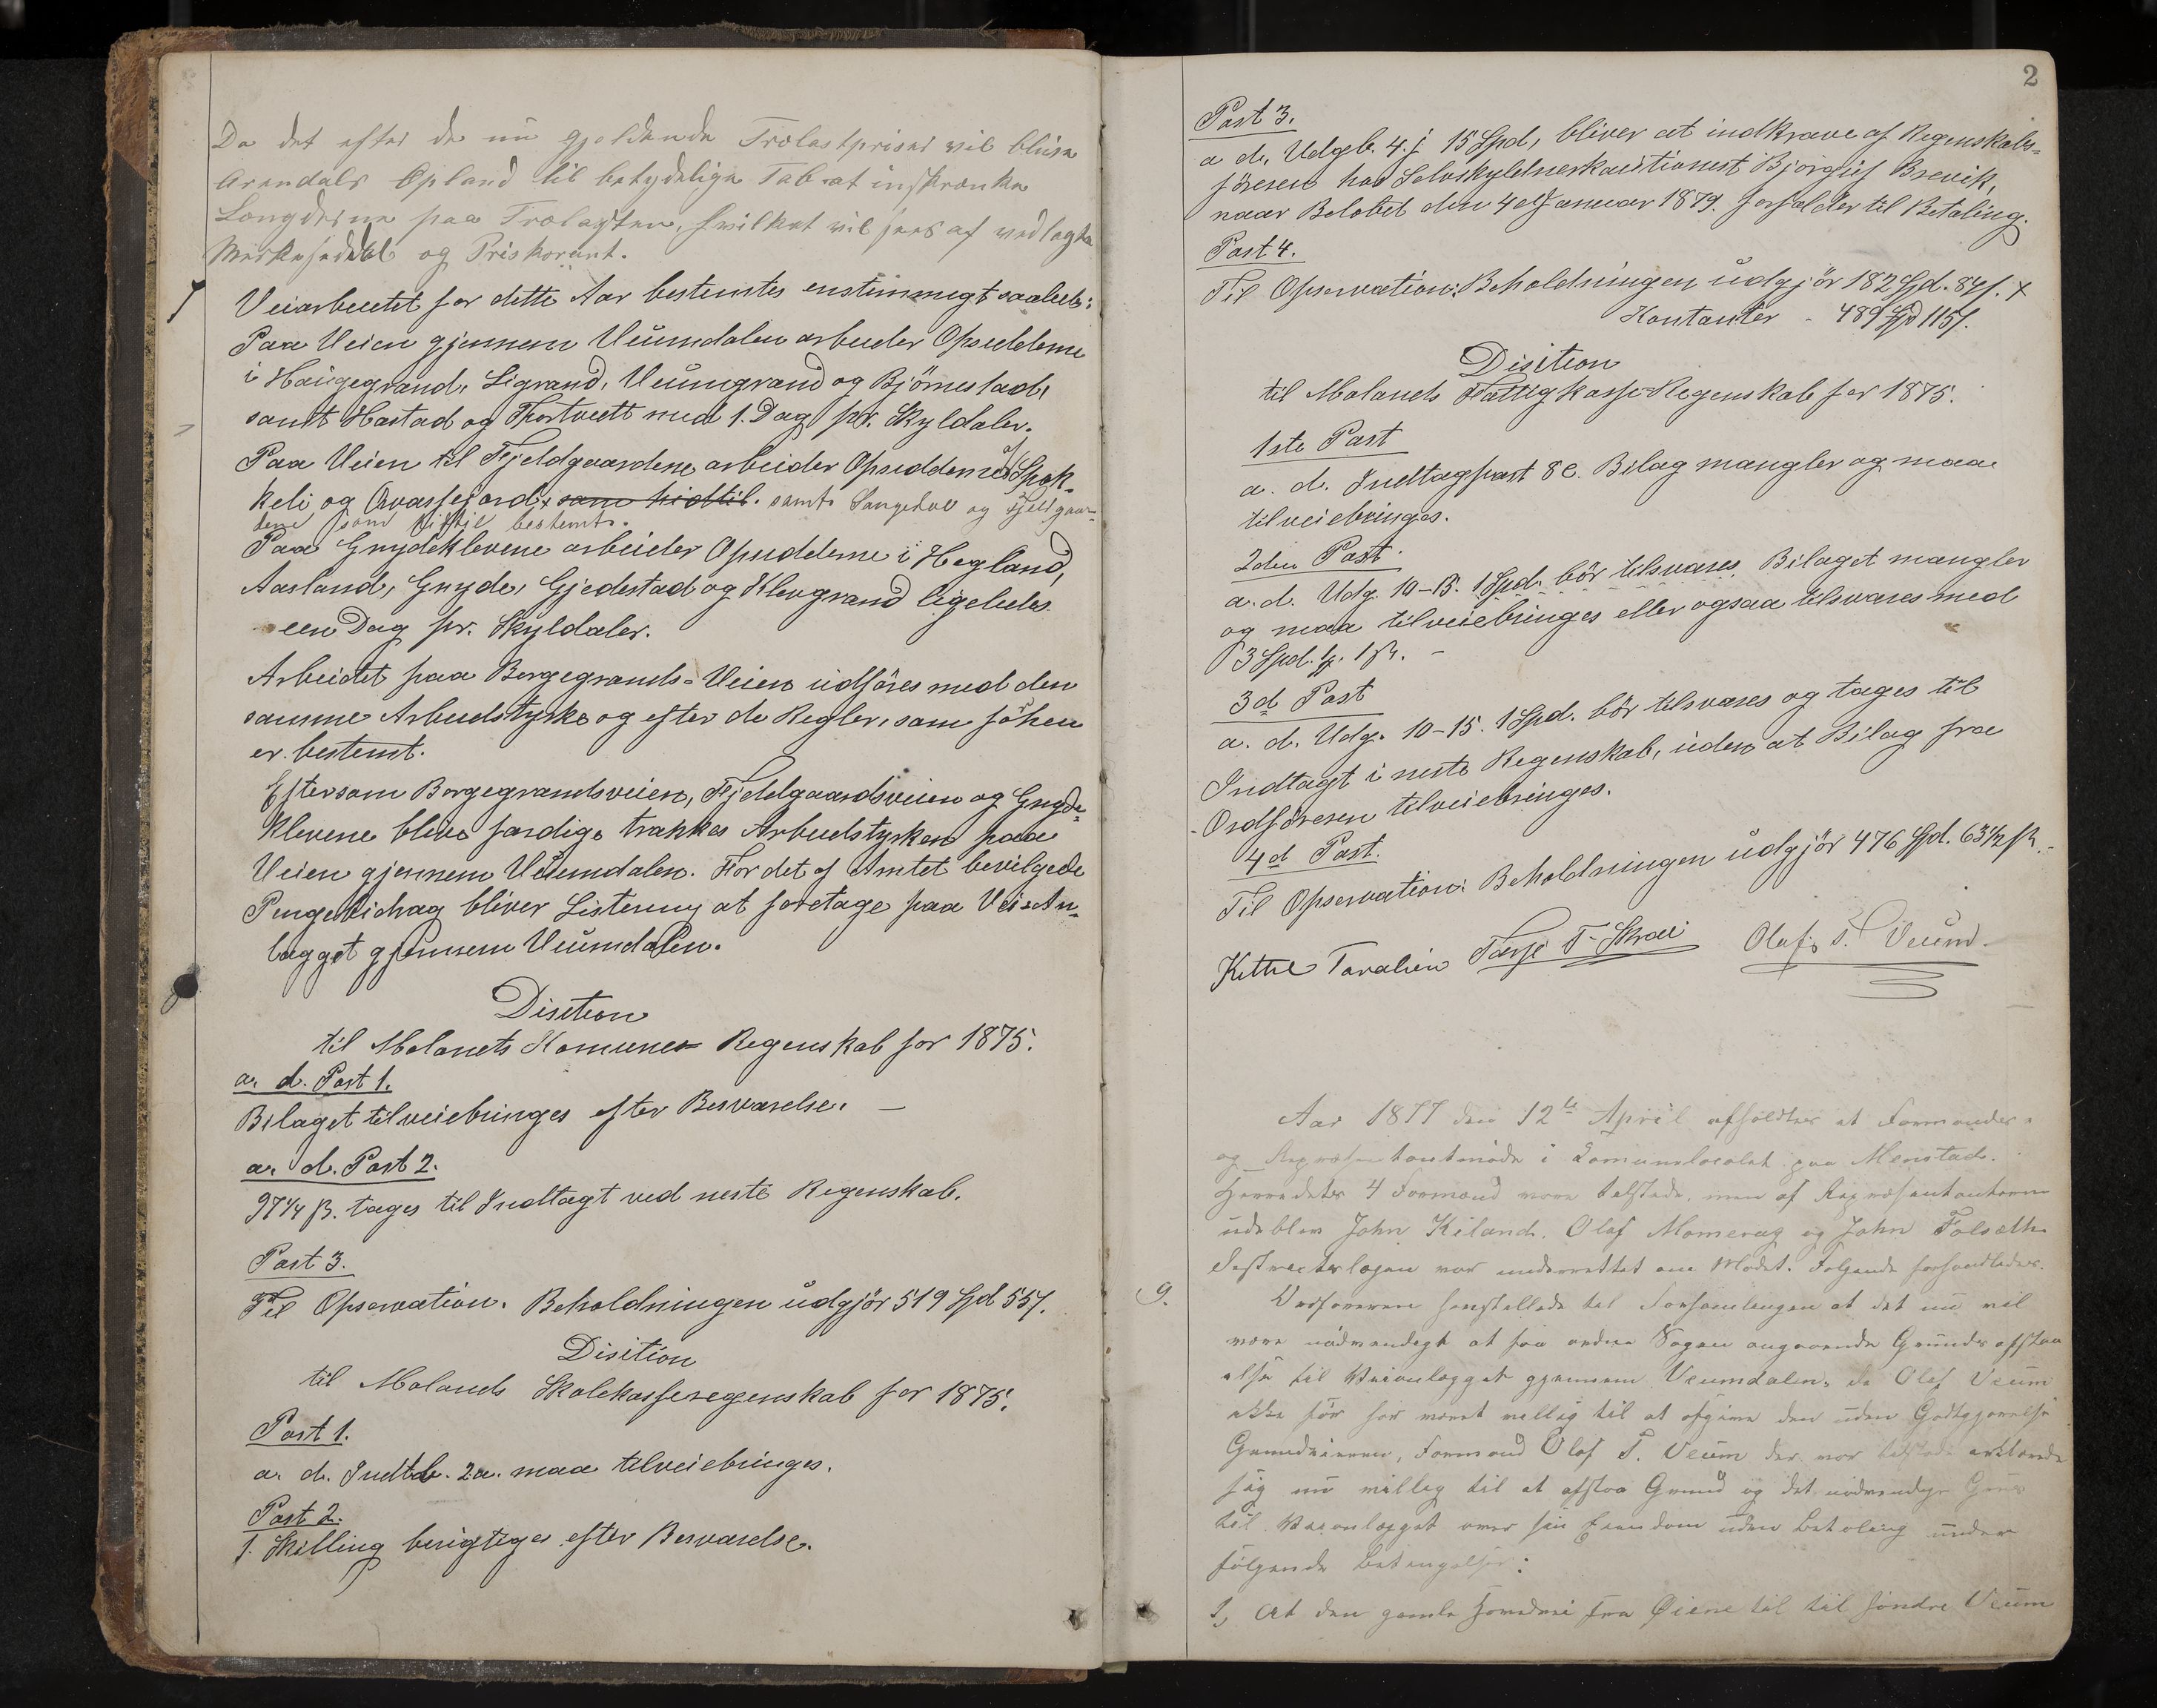 Da det efter de nu gjeldende Trælastpriser vil blive
Arendals Opland til betydelige Tab at inskrænke
Længderne paa Trælasten, hvilket vil sees af vedlagte
Mærkeseddel og Priskorant.
7
Veiarbeidet for dette Aar bestemtes enstemmigt saaleds:
Paa Veien gjennem Veumdalen arbeider Opsidderne
i Haugegrand, Ligrand, Veumgrand og Bjørnestad,
samt Hastad og Thortveitt med 1. Dag pr. Skyldaler.
Paa Veien til Fjeldgaardene arbeider Opsidderne af Skok-
keli og Qvassefjord, som hidtil. samt Langedal og Fjeldgaar-
dene som hidtil bestemt.
Paa Gnydeklevene arbeider Opsidderne i Hegland,
Aasland, Gnyde, Gjedestad og Klevgrand ligeledes
een Dag pr. Skyldaler.
Arbeidet paa Borgegrands-Veien udføres med den
samme Arbeidstyrke og efter de Regler, som før hen
er bestemt.
Eftersom Borgegrandsveien, Fjeldgaardsveien og Gnyde-
klevene blive færdige trækkes Arbeidstyrken paa
Veien gjennem Veumdalen. For det af Amtet bevilgede
Pengebidrag bliver Listering at foretage paa Vei-An-
lægget gjennem Veumdalen.
Disition
til Molands Komunes Regenskab for 1875.
a. d. Post 1.
Bilaget tilveiebringes efter Besvarelse. —
a. d. Post 2.
97¼ β. tages til Indtægt ved neste Regenskab.
Post 3.
Til Opservation. Beholdningen udgjør 519 Spd 55 β.
Disition
til Molands Skolekasseregenskab for 1875.
Post 1.
a. d. Indtb. 2a. maa tilveiebringes.
Post 2.
1. Skilling berigtiges efter Besvarelse.
2
Post 3.
a d. Udgb. 4. j 15 Spd, bliver at indkræve af Regenskabs-
føreren hos Selvskyldnerkautionist Bjørgúf Brevik,
naar Beløbet den 4de Januar 1879. forfalder til Betaling.
Post 4.
Til Opservation: Beholdningen udgjør 182 Spd. 84 β. +
Kontanter - 489 Spd 115 β.
Disition
til Molands Fattigkasse-Regenskab for 1875.
1ste Post
a. d. Indtagpost 8 c. Bilag mangler og maa
tilveiebringes.
2den Post
a. d. Udg. 10-13. 1 Spd. bør tilsvares. Bilaget mangler
og maa tilveiebringes eller ogsaa tilsvares med
3 Spd. 1 β. —
3d Post
a. d. Udg. 10-15. 1 Spd. bør tilsvares og tages til
Indtægt i neste Regenskab, uden at Bilag fra
Ordføreren tilveiebringes.
4d Post.
Til Opservation: Beholdningen udgjør 476 Spd. 63½ β.
Kittil Tarjei T. Skrei Olaf T. Veum
Aar 1877 den 12te April afholdtes et Formands-
og Repræsentantmøde i Komunelocalet paa Menstad.
Herredets 4 Formænd vare tilstede, men af Repræsentanterne
udeblev John Kiland, Olaf Momerag og John Folsæth
var underrettet om Mødet. Følgende forhandledes.
9.
Ordføreren fremstillede til Forsamlingen at det nu vil
være nødvendigt at faa ordne Sagen angaaende Grunds afstaa
else til Veianlægget gjennem Veumdalen, da Olaf Veum
ikke før har været villig til at afgive den uden Godtgjørelse
Grundeieren, Formand Olaf T. Veum der var tilstede erklærede
sig nu villig til at afstaa Grund og det nødvendige Grus
til Veianlægget over sin Eiendom uden Betaling under
følgende Betingelser:
1, At den gamle Hovedvei fra Øiene til til søndre Veum